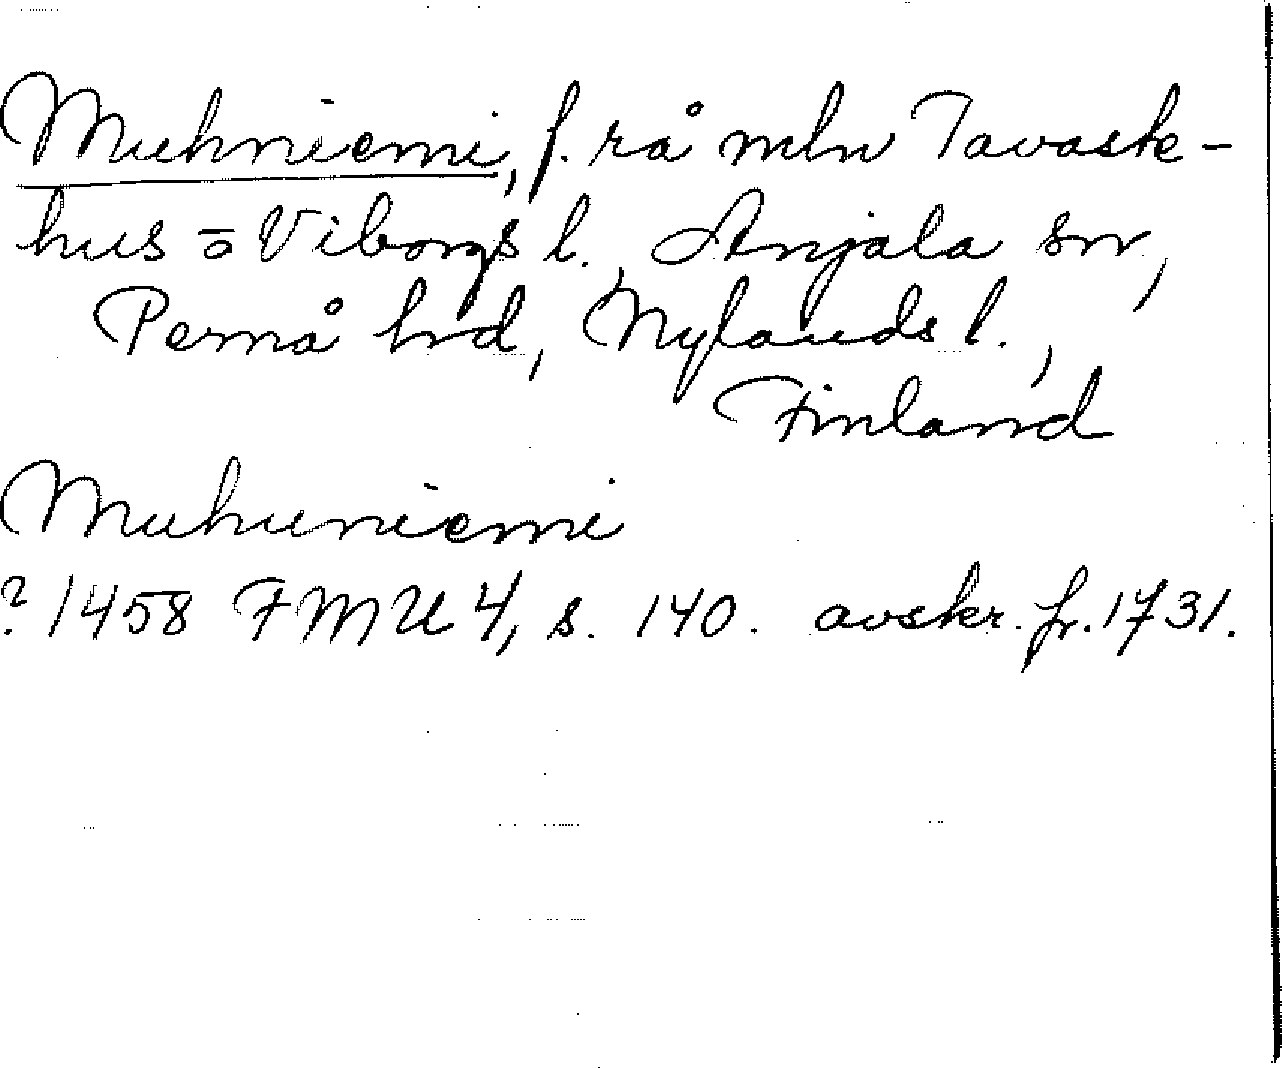 Muhniemi, f. rå mln Tavaste-
hus o Viborgs l., Anjala sn,
Pernå hrd, Nylands l.,
Finland
Muhuniemi
? 1458 FMU 4, s. 140. avskr. fr. 1731.